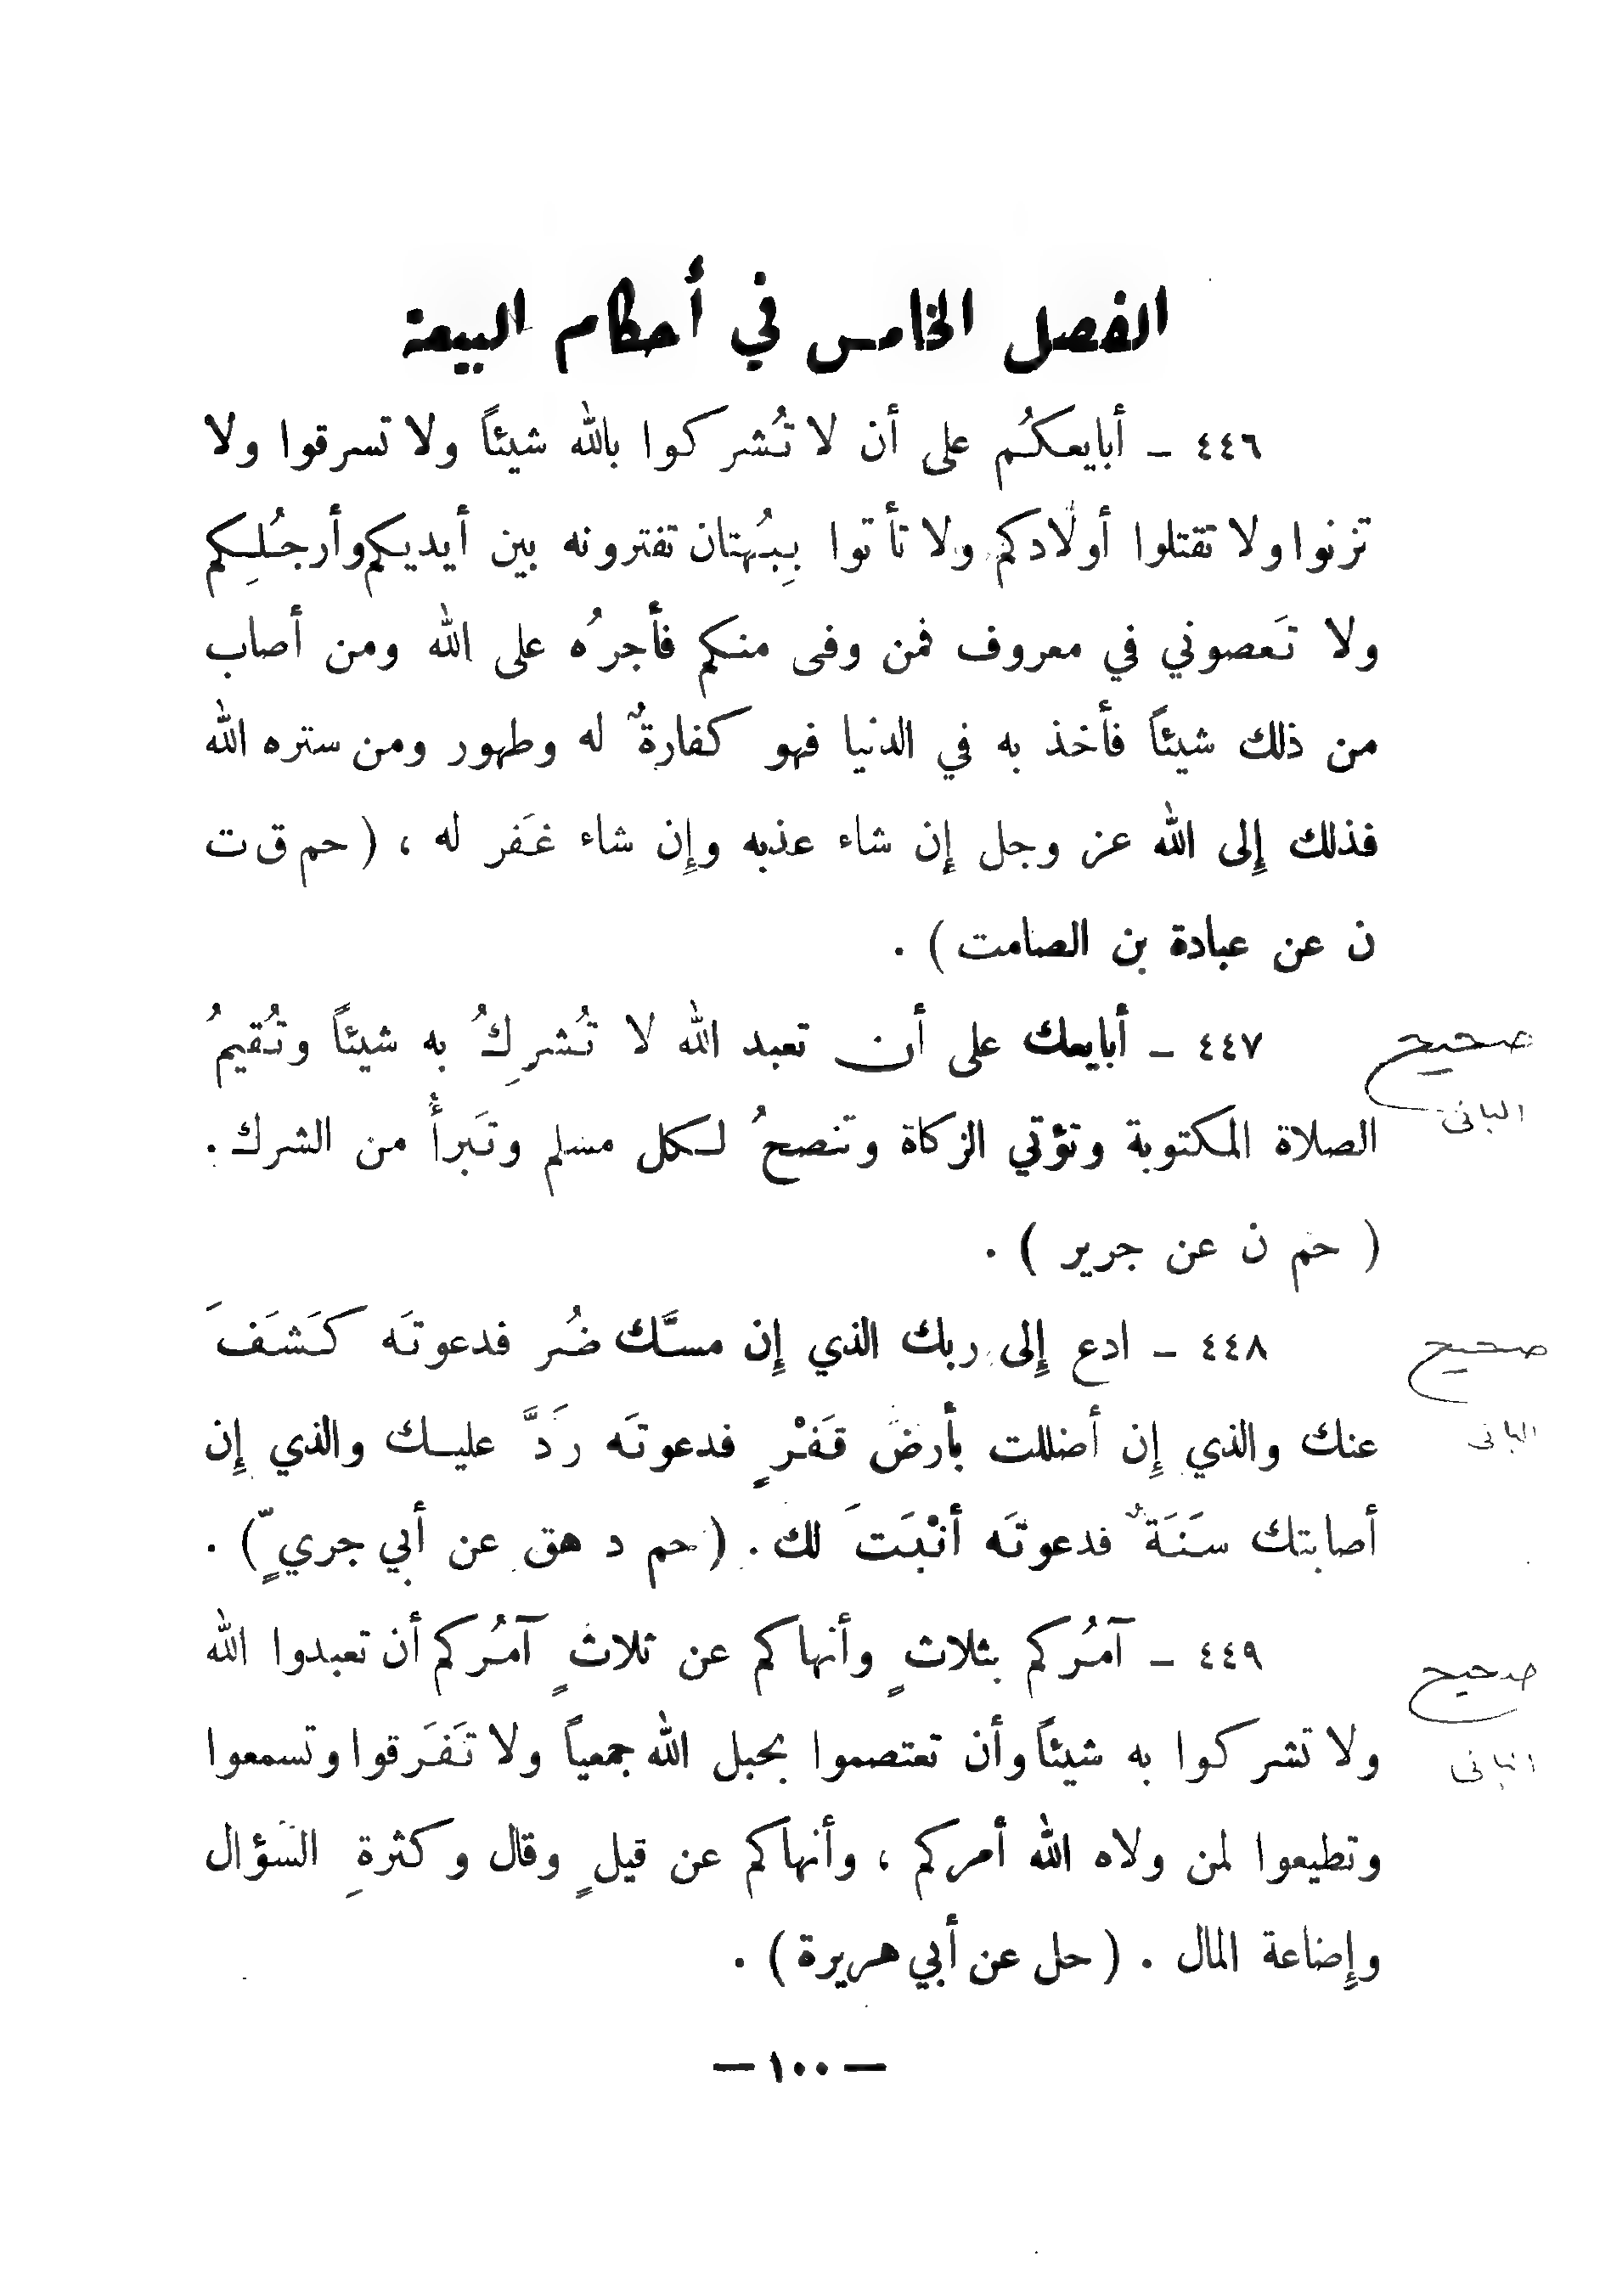 الفصل الخامس في أحكام البيعة
٤٤٦ ـ أبايعكُم على أن لا تُشركوا بالله شيئاً ولا تسرقوا ولا
تزنوا ولا تقتلوا أولادكم ولا تأتوا بِبُهتان تفترونه بين أيديكم وأرجُلِكم
ولا تَعصوني في معروف فمن وفى منكم فأجرُه على الله ومن أصاب
من ذلك شيئاً فأخذ به في الدنيا فهو كفارةٌ له وطهور ومن ستره الله
فذلك إِلى الله عز وجل إن شاء عذبه وإِن شاء غَفر له ، ( حم ق ت
ن عن عبادة بن الصامت ) .
٤٤٧ ـ أبايعك على أن تعبد الله لا تُشرِكُ به شيئاً وتُقيمُ
صحيح
البانى
الصلاة المكتوبة وتؤتي الزكاة وتنصحُ لكل مسلم وتَبرأُ من الشرك .
( حم ن عن جرير ) .
٤٤٨ ـ ادع إِلى ربك الذي إِن مسَّك ضُر فدعوتَه كَشَفَ
صحيح
البانى
عنك والذي إِن أضللت بأرض قَفْرٍ فدعوتَه رَدَّ عليك والذي إِن
أصابتك سَنَةٌ فدعوتَه أنْبَتَ لك . ( حم د هق عن أبي جريٍّ ) .
٤٤٩ ـ آمُركم بثلاثٍ وأنهاكم عن ثلاثٍ آمُركم أن تعبدوا الله
صحيح
البانى
ولا تشركوا به شيئاً وأن تعتصموا بحبل الله جمعياً ولا تَفَرقوا وتسمعوا
وتطيعوا لمن ولاه الله أمركم ، وأنهاكم عن قيلٍ وقال وكثرةِ السؤال
وإِضاعة المال . ( حل عن أبي هريرة ) .
— ١٠٠ —